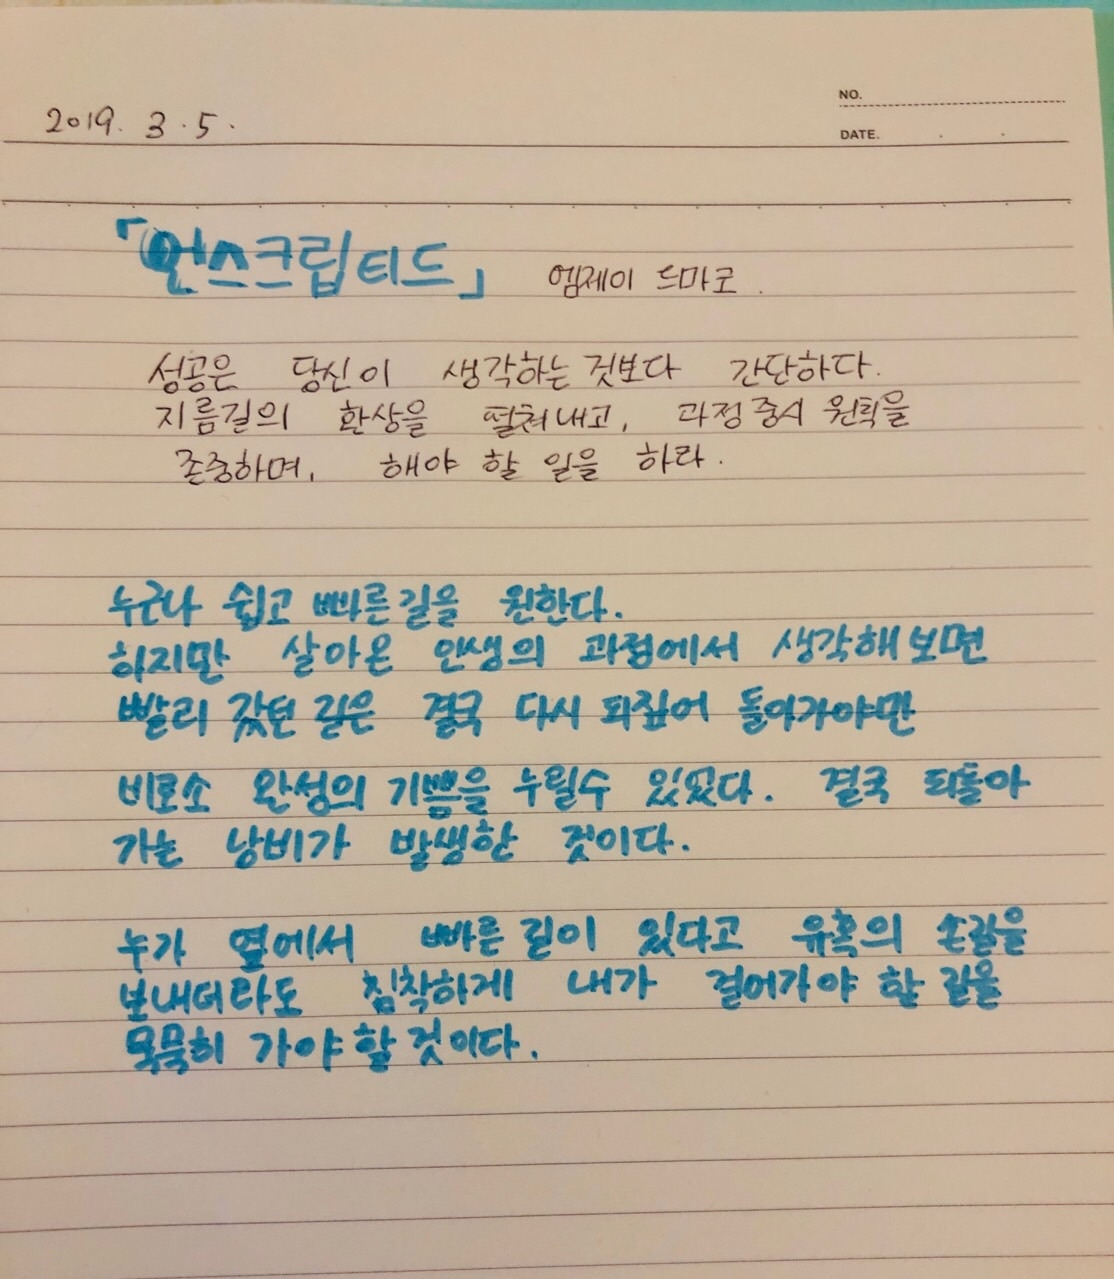 NO.
2019. 3. 5.
DATE.
「언스크립티드」 엠제이 드마코.
성공은 당신이 생각하는 것보다 간단하다.
지름길의 환상을 떨쳐내고, 과정중시 원칙을
존중하며, 해야 할 일을 하라.
누구나 쉽고 빠른길을 원한다.
하지만 살아온 인생의 과정에서 생각해보면
빨리 갔던 길은 결국 다시 되짚어 돌아가야만
비로소 완성의 기쁨을 누릴수 있었다. 결국 되돌아
가는 낭비가 발생한 것이다.
누가 옆에서 빠른 길이 있다고 유혹의 손길을
보내더라도 침착하게 내가 걸어가야 할 길을
묵묵히 가야할 것이다.